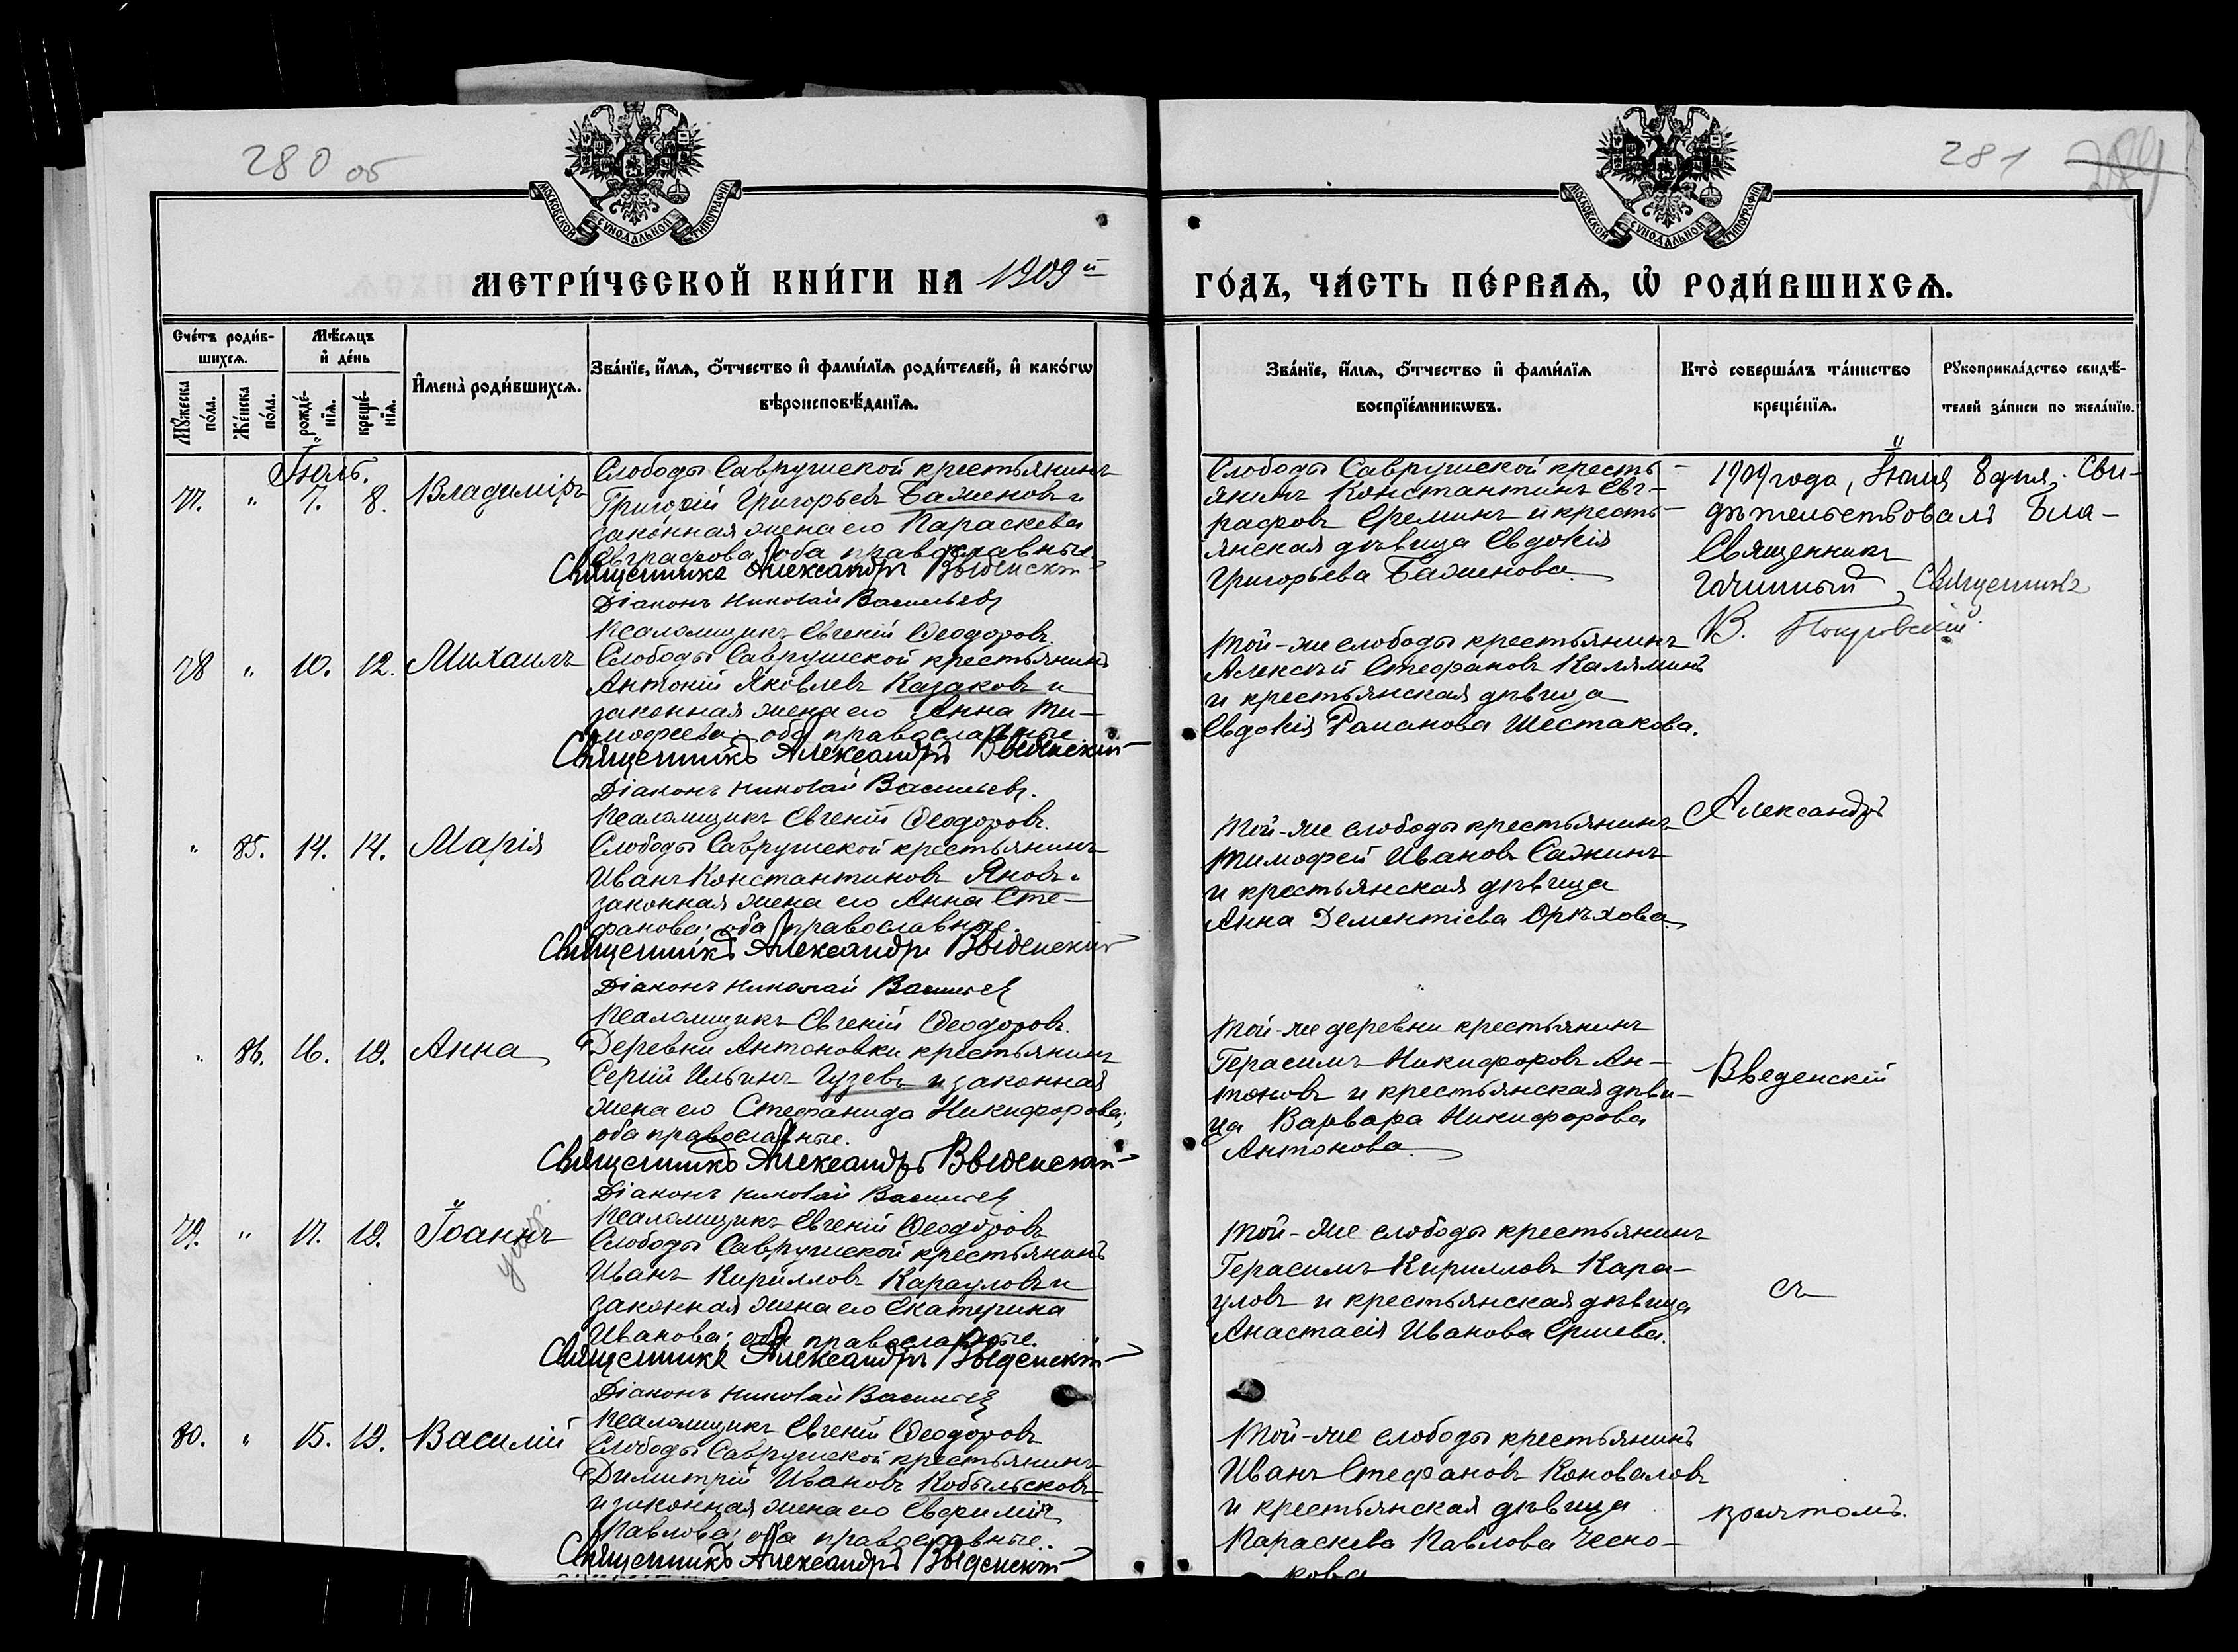 280 об
281
284
МОСКОВСКОЙ СѴНОДАЛЬНОЙ ТИПОГРАФІИ
МОСКОВСКОЙ СѴНОДАЛЬНОЙ ТИПОГРАФІИ
МЕТРИ́ЧЕСКОЙ КНИ́ГИ НА 1909й
ГО́ДЪ, ЧА́СТЬ ПЕ́РВАѦ, Ѡ҆ РОДИ́ВШИХСѦ.
Счётъ роди́в-
шихсѧ.
Мѣ́сѧцъ
и҆ де́нь
И҆мена̀ роди́вшихсѧ.
Зва́нїе, и҆́мѧ, ѻ҆́тчество и҆ фами́лїѧ роди́телей, и҆ како́гѡ
вѣроисповѣ́данїѧ.
Мꙋ́жеска по́ла.
Же́нска по́ла.
рожде́нїѧ.
креще́нїѧ.
Зва́нїе, и҆́мѧ, ѻ҆́тчество и҆ фами́лїѧ
воспрїе́мникѡвъ.
Кто̀ соверша́лъ та́инство
креще́нїѧ.
Рꙋкоприкла́дство свидѣ́-
телей за́писи по жела́нїю.
Іюль.
77. " 7. 8. Владиміръ
Слободы Саврушской крестьянинъ
Григорій Григорьевъ Баженовъ и
законная жена его Параскева
Евграфова; оба православные.
Священникъ Александръ Введенскій
Діаконъ Николай Васильевъ
Псаломщикъ Евгеній Ѳеодоровъ.
Слободы Саврушской кресть-
янинъ Константинъ Евг-
рафовъ Ереминъ и кресть-
янская дѣвица Евдокія
Григорьева Баженова.
1909 года, Іюля 8 дня, Сви-
дѣтельствовалъ Бла-
Священникъ
гочинный, Священникъ
В. Покровскій.
78 " 10. 12. Михаилъ
Слободы Саврушской крестьянинъ
Антоній Яковлевъ Казаковъ и
законная жена его Анна Ти-
мофеева; оба православные
Священникъ Александръ Введенскій
Діаконъ Николай Васильевъ.
Псаломщикъ Евгеній Ѳеодоровъ.
Той-же слободы крестьянинъ
Алексѣй Стефановъ Каляминъ
и крестьянская дѣвица
Евдокія Романова Шестакова.
Александръ
" 85. 14. 14. Марія
Слободы Саврушской крестьянинъ
Иванъ Константиновъ Яновъ и
законная жена его Анна Сте-
фанова; оба православные.
Священникъ Александръ Введенскій
Діаконъ Николай Васильевъ
Псаломщикъ Евгеній Ѳеодоровъ.
Той-же слободы крестьянинъ
Тимофей Ивановъ Сажинъ
и крестьянская дѣвица
Анна Дементіева Орѣхова.
" 86. 16. 19. Анна
Деревни Антоновки крестьянинъ
Сергій Ильинъ Гузевъ и законная
жена его Стефанида Никифорова;
оба православные.
Священникъ Александръ Введенскій
Діаконъ Николай Васильевъ
Псаломщикъ Евгеній Ѳеодоровъ
Той-же деревни крестьянинъ
Герасимъ Никифоровъ Ан-
тоновъ и крестьянская дѣви-
ца Варвара Никифорова
Антонова.
Введенскій
79. " 17. 19. Іоаннъ
умер.
Слободы Саврушской крестьянинъ
Иванъ Кирилловъ Карауловъ и
законная жена его Екатерина
Иванова; оба православные.
Священникъ Александръ Введенскій
Діаконъ Николай Васильевъ
Псаломщикъ Евгеній Ѳеодоровъ
Той-же слободы крестьянинъ
Герасимъ Кирилловъ Кара-
уловъ и крестьянская дѣвица
Анастасія Иванова Ершева.
съ
80. " 15. 19. Василій
Слободы Саврушской крестьянинъ
Димитрій Ивановъ Кобыльсковъ
и законная жена его Евфимія
Павлова; оба православные.
Священникъ Александръ Введенскій
Той-же слободы крестьянинъ
Иванъ Стефановъ Коноваловъ
и крестьянская дѣвица
Параскева Павлова Чесно-
кова
причтомъ.